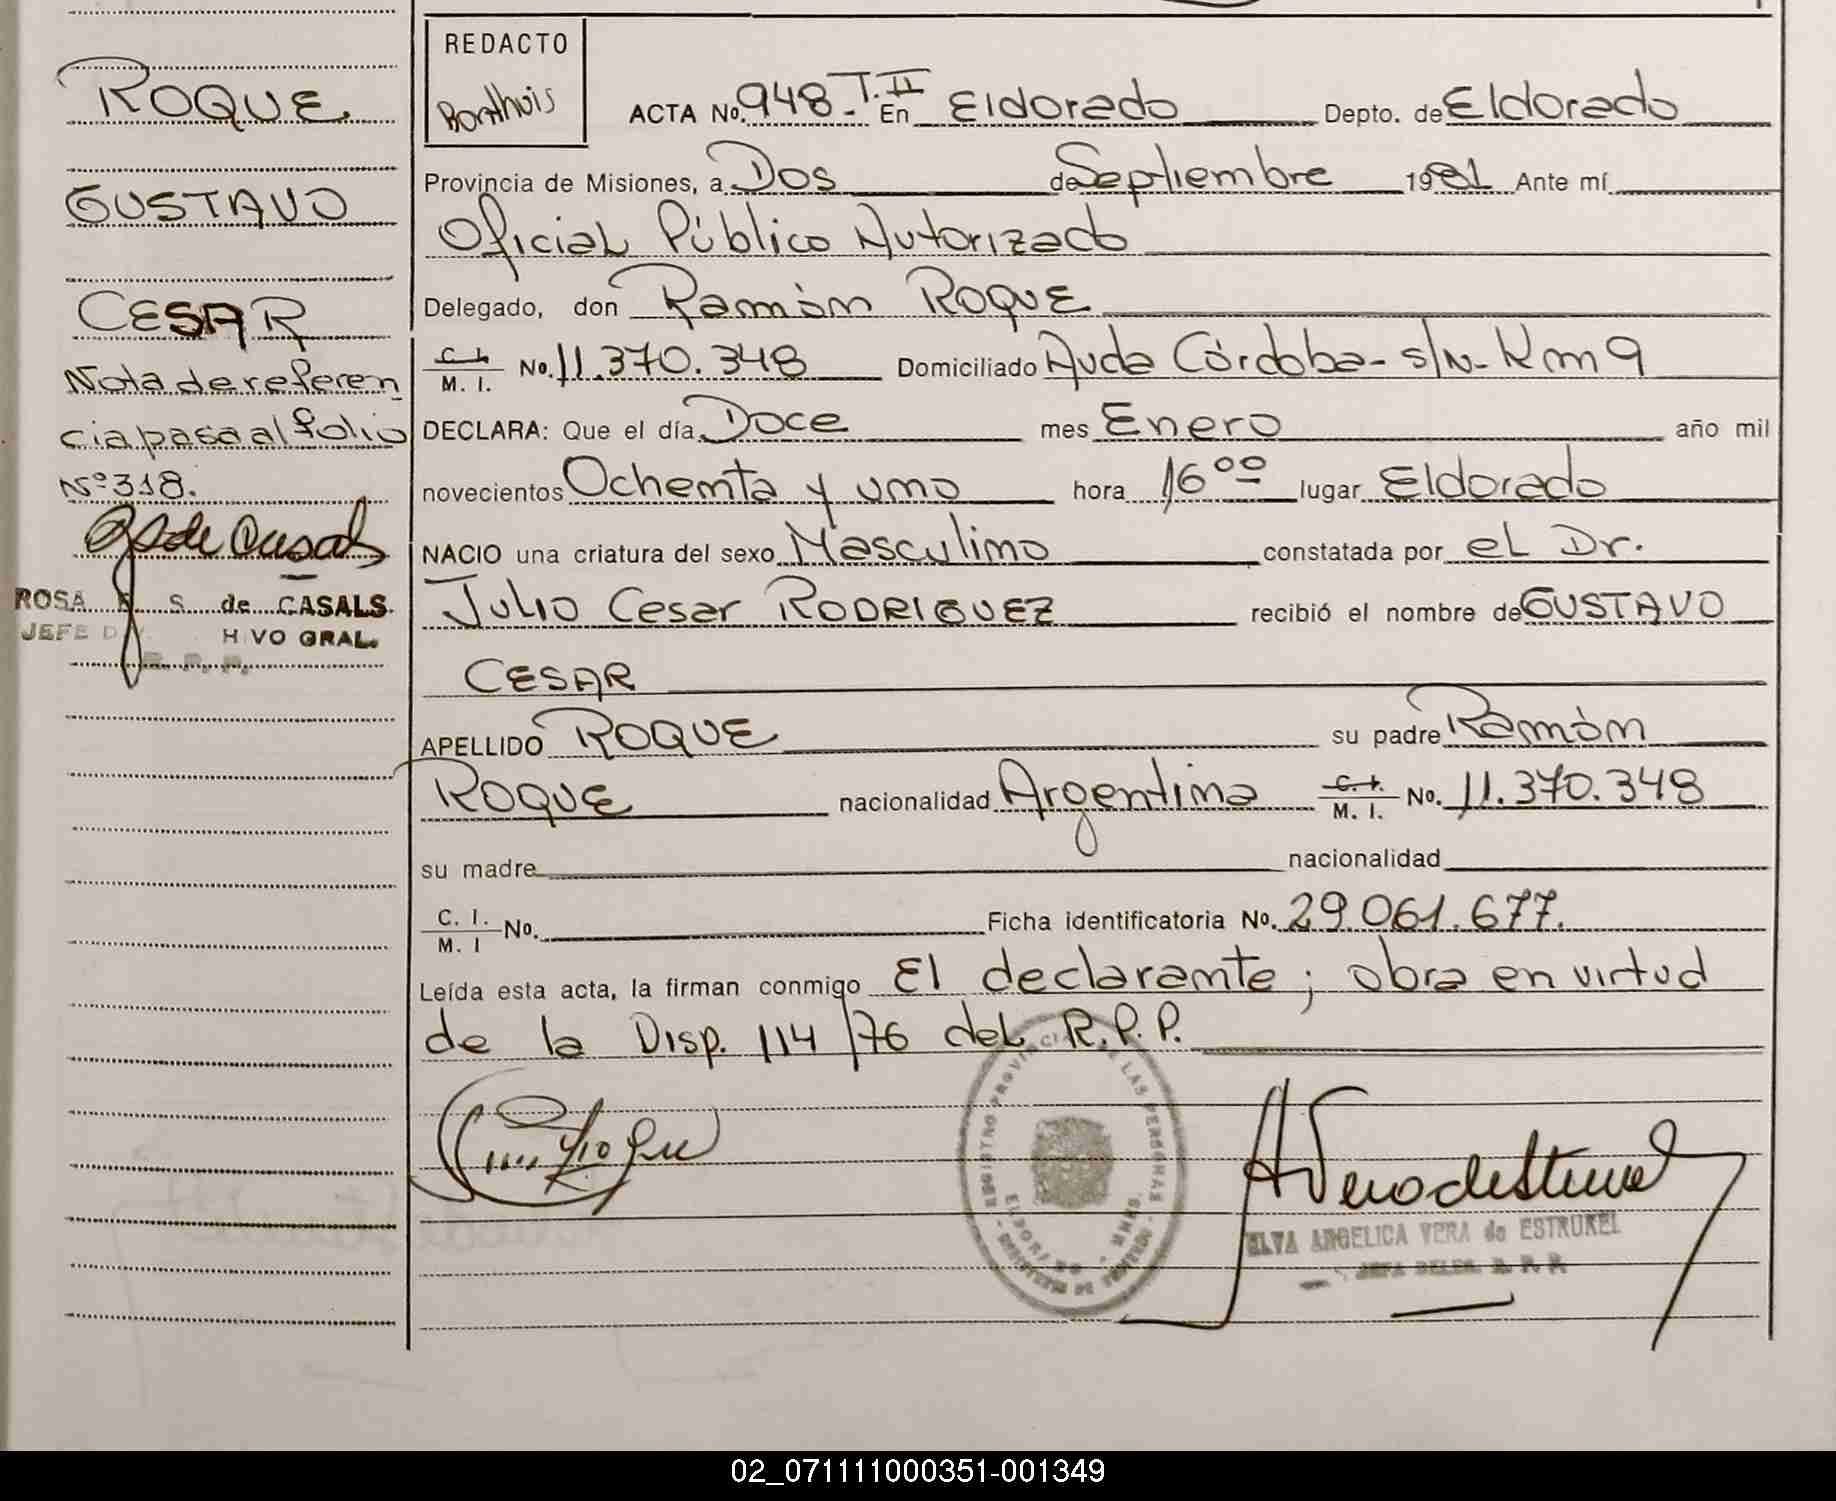 ROQUE
GUSTAVO
CESAR
Nota de referen
cia pasa al folio
Nº 318.
ROSA S. de CASALS.
JEFE D HIVO GRAL.
R. P. P.
REDACTO
ACTA No. 948 - T. II En Eldorado Depto. de Eldorado
Provincia de Misiones, a Dos de Septiembre 1981 Ante mí
Oficial Público Autorizado
Delegado, don Ramón ROQUE
C. I. M. I. No. 11.370.348 Domiciliado Avda Córdoba - s/N - Km 9
DECLARA: Que el día Doce mes Enero año mil
novecientos Ochenta y uno hora 16 00 lugar Eldorado
NACIO una criatura del sexo Masculino constatada por el Dr.
Julio Cesar RODRIGUEZ recibió el nombre de GUSTAVO
CESAR
APELLIDO ROQUE su padre Ramón
ROQUE nacionalidad Argentina C. I. M. I. No. 11.370.348
su madre nacionalidad
C. I. M. I No. Ficha identificatoria No. 29.061.677.
Leída esta acta, la firman conmigo El declarante; obra en virtud
de la Disp. 114/76 del R.P.P.
REGISTRO PROVINCIAL DE LAS PERSONAS
ELVA ANGELICA VERA de ESTRUKEL
JEFA DELEG. R. P. P.
02_071111000351-001349